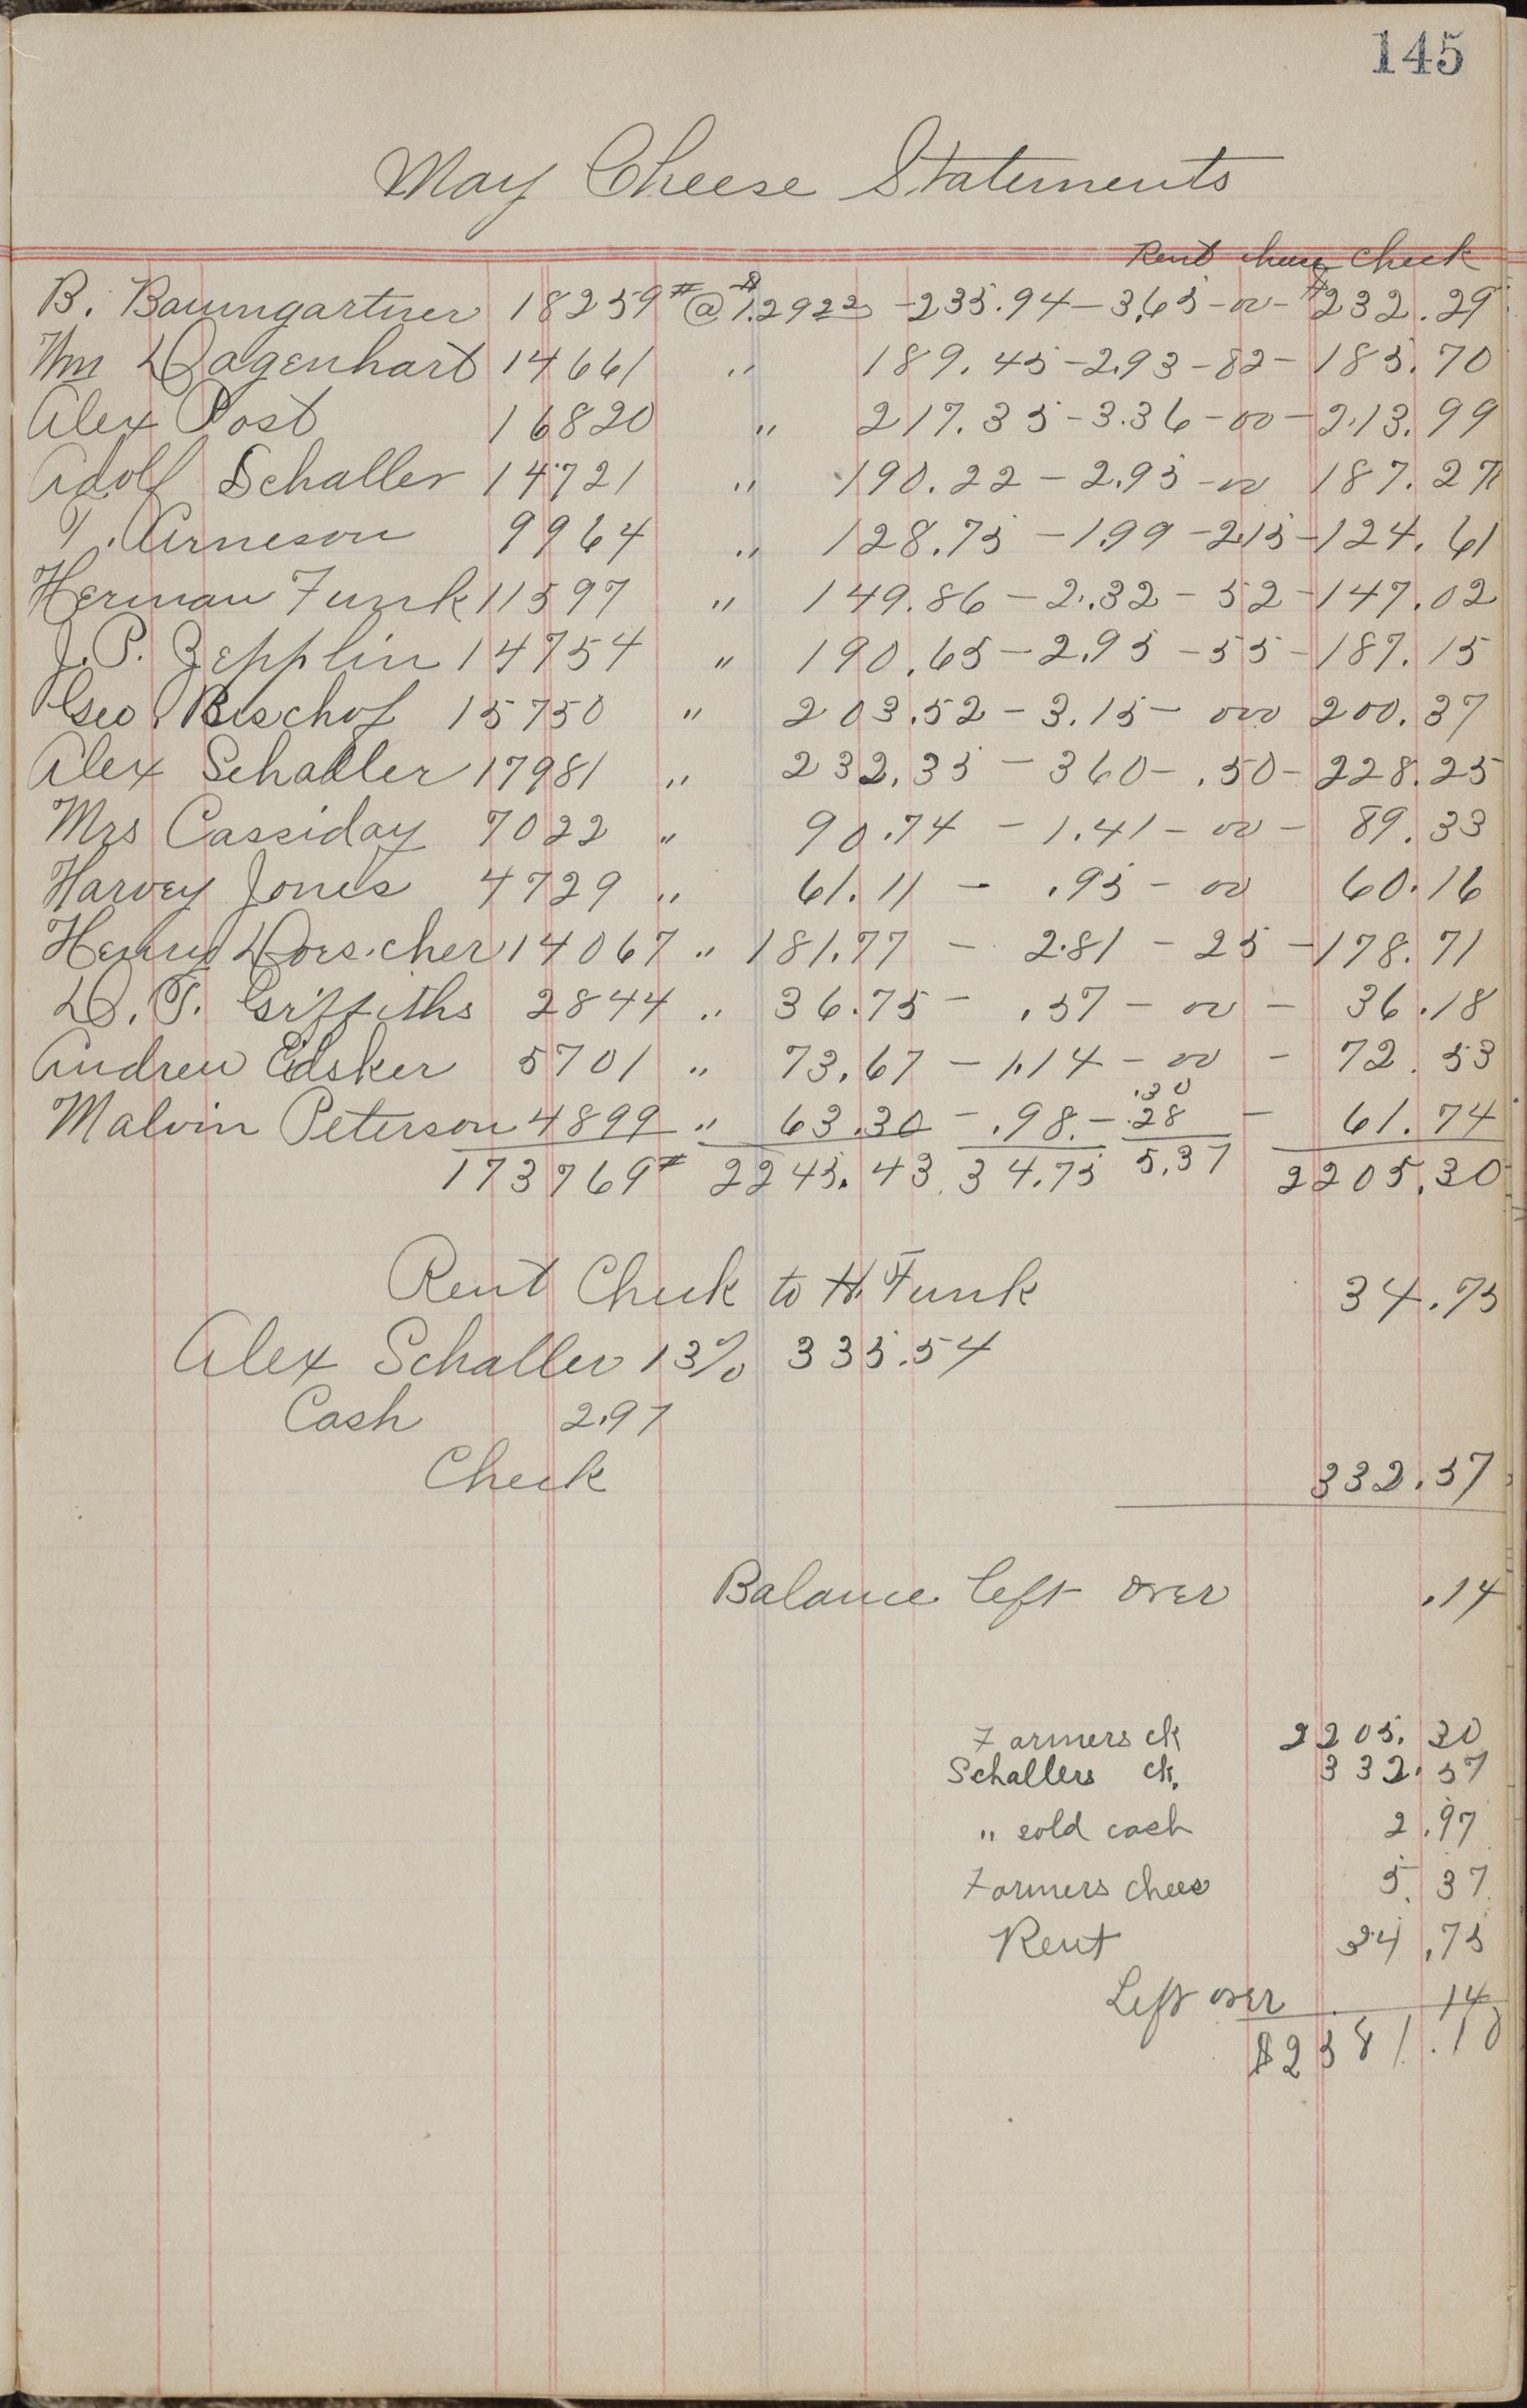 145
May Cheese Statements
Rent cheese Check
B. Baumgartner 18259# @ $1.2922 - 235.94 - 3.65 - 00 - $232.29
Wm Dagenhart 14661 " 189.45 - 2.93 - 82 - 185.70
Alex Post 16820 " 217.35 - 3.36 - 00 - 213.99
Adolf Schaller 14721 " 190.22 - 2.95 - 00 187.27
T. Arneson 9964 " 128.75 - 1.99 - 2.15 - 124.61
Herman Funk 11597 " 149.86 - 2.32 - 52 - 147.02
J. P. Zepplin 14754 " 190.65 - 2.95 - 55 - 187.15
Geo Bischof 15750 " 203.52 - 3.15 - 000 200.37
Alex Schaller 17981 " 232.35 - 360 - .50 - 228.25
Mrs Cassiday 7022 " 90.74 - 1.41 - 00 - 89.33
Harvey Jones 4729 " 61.11 - .95 - 00 60.16
Henry Doescher 14067 " 181.77 - 2.81 - 25 - 178.71
D. T. Griffiths 2844 " 36.75 - .57 - 00 - 36.18
Andrew Edsker 5701 " 73.67 - 1.14 - 00 - 72.53
.30
Malvin Peterson 4899 " 63.30 - .98 - .28 - 61.74
173769# 2245.43 34.75 5.37 2205.30
Rent Check to H. Funk 34.75
Alex Schaller 13% 335.54
Cash 2.97
Check 332.57
Balance left over .14
Farmers ck 2205.30
Schallers ck. 332.57
" sold cash 2.97
Farmers chees 5.37
Rent 34.75
Left over 14
$2581.10